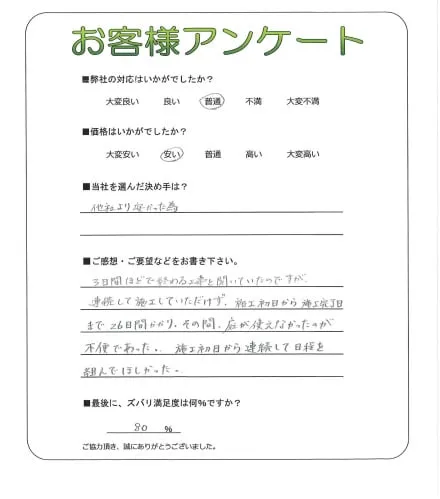 お客様アンケート
■弊社の対応はいかがでしたか？
大変良い 良い 普通 不満 大変不満
■価格はいかがでしたか？
大変安い 安い 普通 高い 大変高い
■当社を選んだ決め手は？
他社より安かった為
■ご感想・ご要望などをお書き下さい。
3日間ほどで終わる工事と聞いていたのですが
連続して施工していただけず、施工初日から施工完了日
まで26日間かかり、その間、庭が使えなかったのが
不便であった。施工初日から連続して日程を
組んでほしかった。
■最後に、ズバリ満足度は何％ですか？
80 ％
ご協力頂き、誠にありがとうございました。